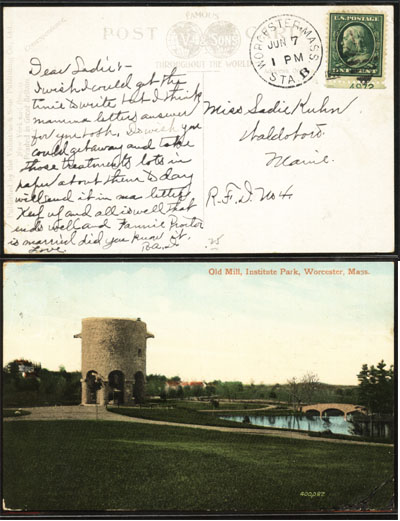 FAMOUS
POST CARD
THROUGHOUT THE WORLD
WORCESTER, MASS.
JUN 7
1 PM
STA. B
U.S. POSTAGE
ONE CENT
Dear Sadie:-
I wish I could get the
time to write but I think
mamma letters answer
for you both, I wish you
could get away and take
those treatments lots in
paper about them to day
will send it in ma letter
Keep up and all is well that
ends well and Fannie Proctor
is married did you know it.
Love.
Miss Sadie Kuhn
Waldoboro
Maine.
R.F.D. No 4
Old Mill, Institute Park, Worcester, Mass.